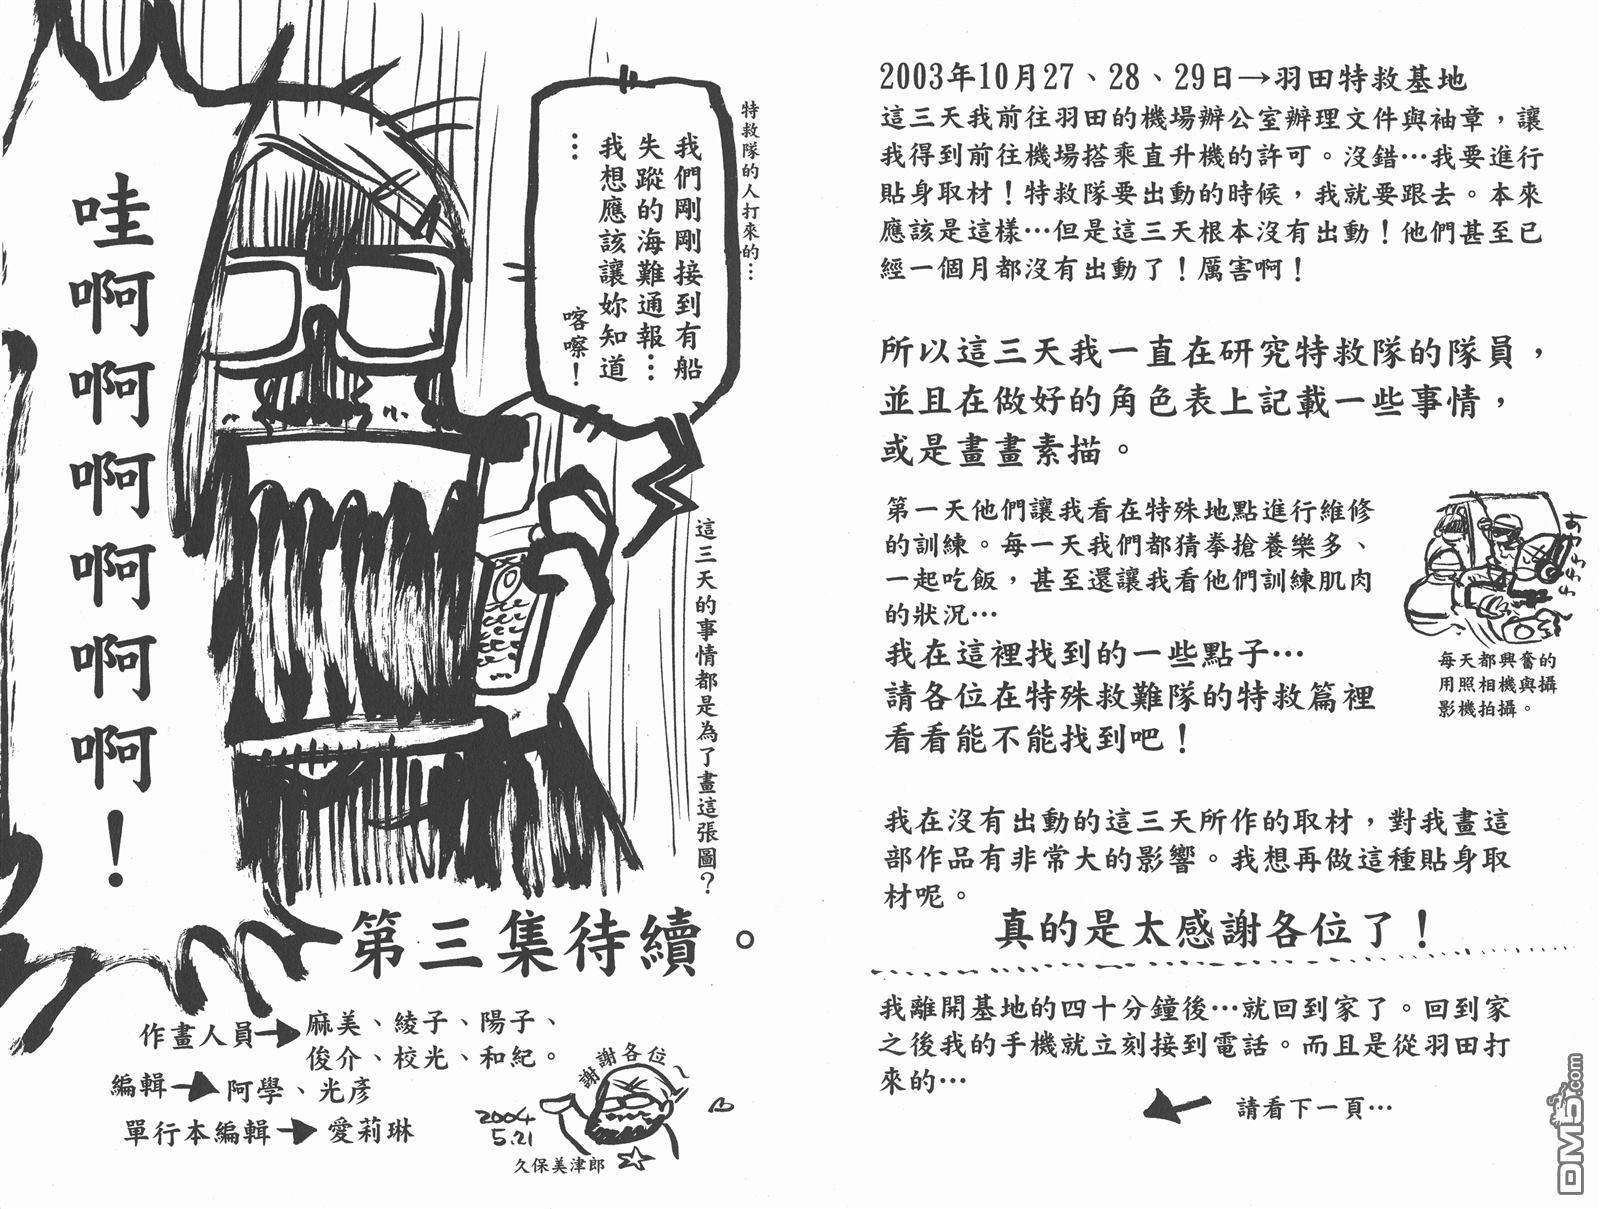 2003年10月27、28、29日→羽田特救基地
這三天我前往羽田的機場辦公室辦理文件與袖章，讓
我得到前往機場搭乘直升機的許可。沒錯…我要進行
貼身取材！特救隊要出動的時候，我就要跟去。本來
應該是這樣…但是這三天根本沒有出動！他們甚至已
經一個月都沒有出動了！厲害啊！
所以這三天我一直在研究特救隊的隊員，
並且在做好的角色表上記載一些事情，
或是畫畫素描。
第一天他們讓我看在特殊地點進行維修
的訓練。每一天我們都猜拳搶養樂多、
一起吃飯，甚至還讓我看他們訓練肌肉
的狀況…
我在這裡找到的一些點子…
請各位在特殊救難隊的特救篇裡
看看能不能找到吧！
每天都興奮的
用照相機與攝
影機拍攝。
我在沒有出動的這三天所作的取材，對我畫這
部作品有非常大的影響。我想再做這種貼身取
材呢。
真的是太感謝各位了！
我離開基地的四十分鐘後…就回到家了。回到家
之後我的手機就立刻接到電話。而且是從羽田打
來的…
請看下一頁…
特救隊的人打來的…
我們剛剛接到有船
失蹤的海難通報…
我想應該讓妳知道
…
喀嚓！
這三天的事情都是為了畫這張圖？
哇啊啊啊啊啊啊！
第三集待續。
作畫人員→麻美、綾子、陽子、
俊介、校光、和紀。
編輯→阿學、光彥
單行本編輯→愛莉琳
謝謝各位～
2004
5.21
久保美津郎
DM5.com